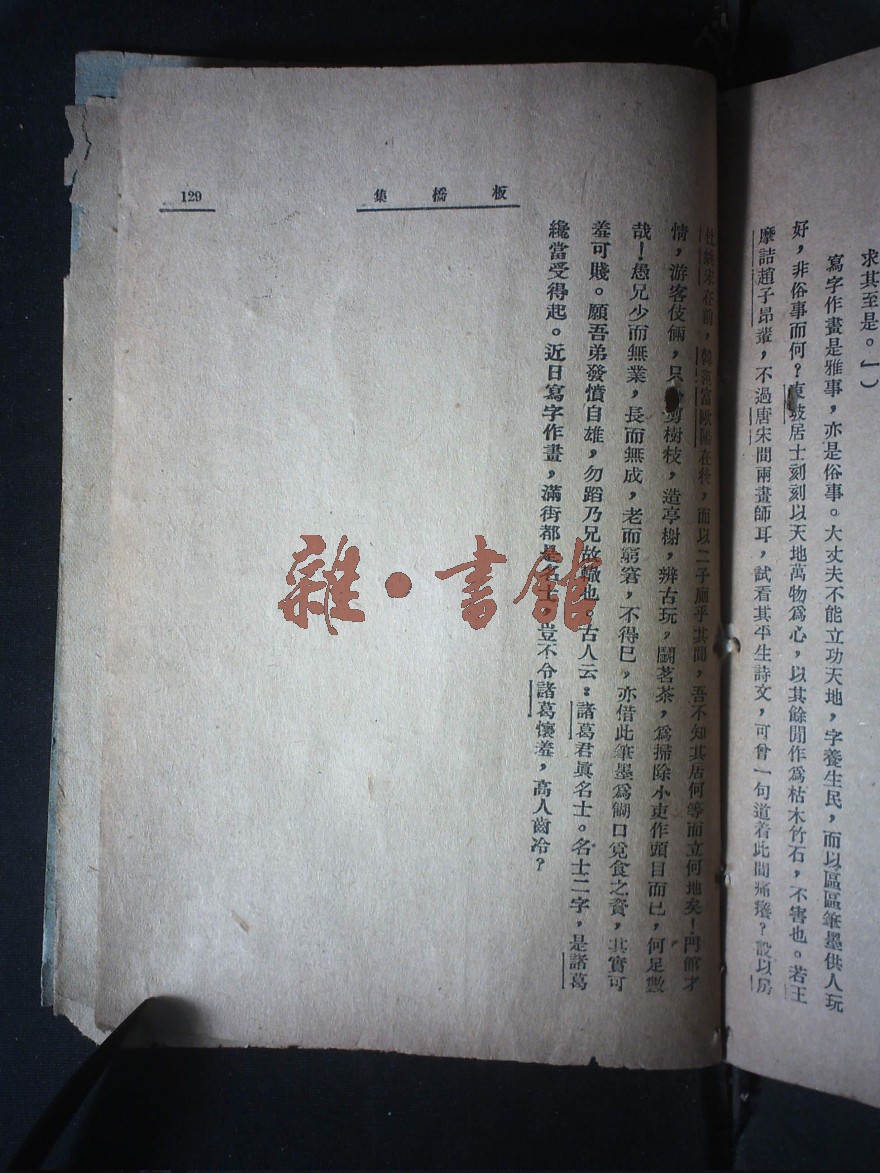 求其至是。」）
寫字作畫是雅事，亦是俗事。大丈夫不能立功天地，字養生民，而以區區筆墨供人玩
好，非俗事而何？東坡居士刻刻以天地萬物爲心，以其餘閒作爲枯木竹石，不害也。若王
摩詰趙子昂輩，不過唐宋間兩畫師耳，試看其平生詩文，可曾一句道着此間痛癢？設以房
杜姚宋在前，韓范富歐陽在後，而以二子廁乎其間，吾不知其居何等而立何地矣！門館才
情，游客伎倆，只剪樹枝，造亭榭，辨古玩，鬭茗茶，爲掃除小吏作頭目而已，何足數
哉！愚兄少而無業，長而無成，老而窮窘，不得已，亦借此筆墨爲餬口覓食之資，其實可
羞可賤。願吾弟發憤自雄，勿蹈乃兄故轍也。古人云：諸葛君眞名士。名士二字，是諸葛
纔當受得起。近日寫字作畫，滿街都是名士，豈不令諸葛懷羞，高人齒冷？
板橋集
129
雜·書館